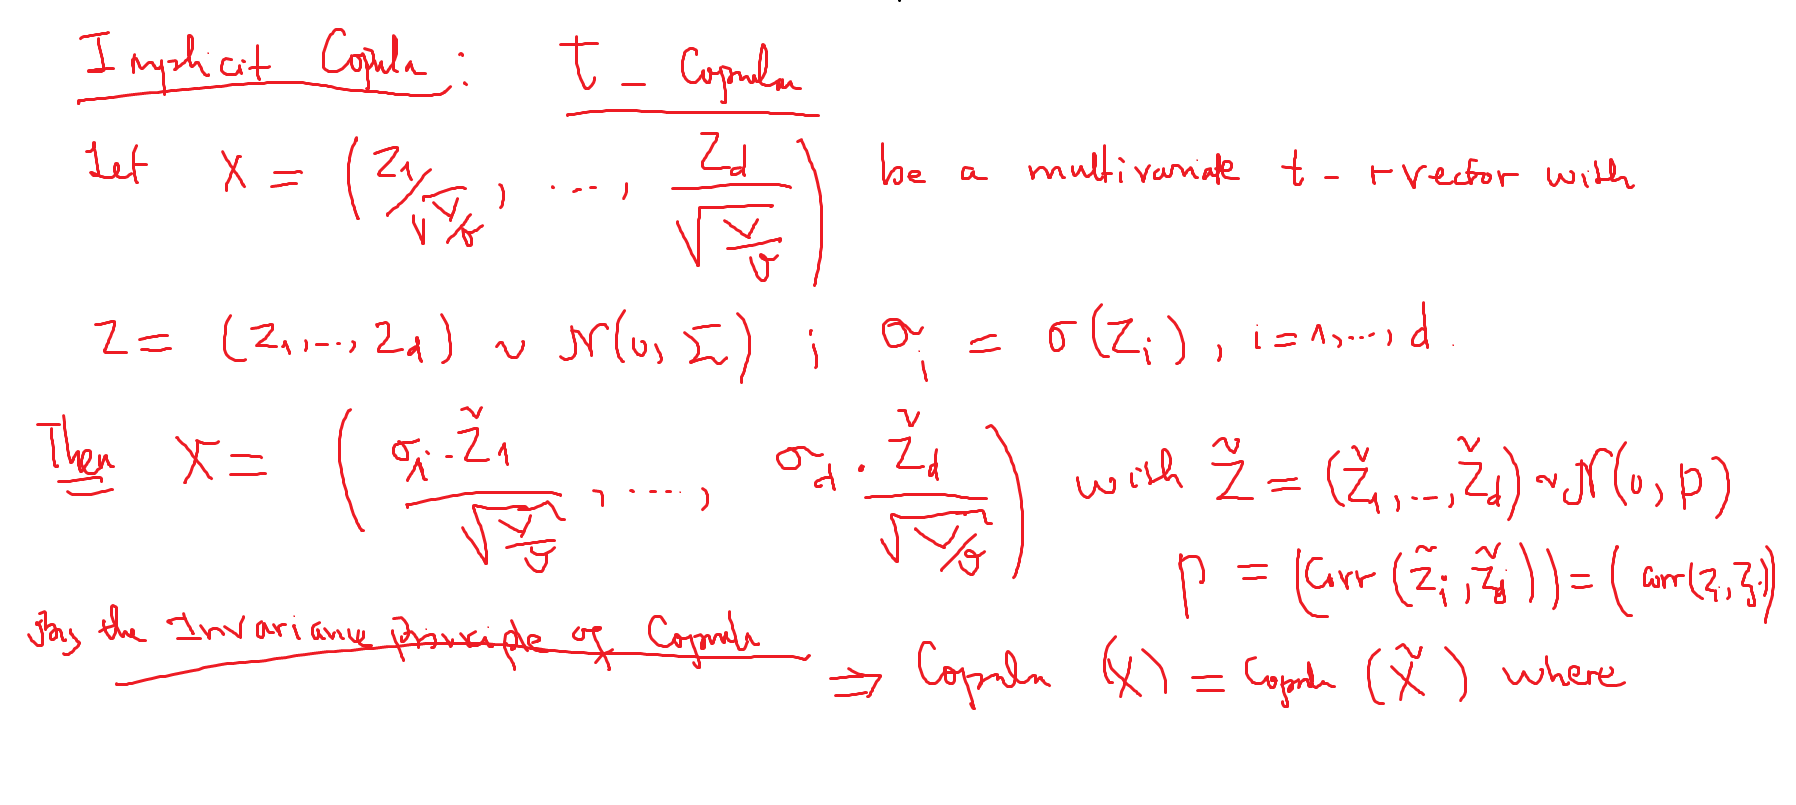 Implicit Copula : t - Copula
Let X = (Z₁/√(V/υ), ..., Z_d/√(V/υ)) be a multivariate t - rvector with
Z = (Z₁, ..., Z_d) ~ N(0, Σ) ; σ_i = σ(Z_i), i = 1, ..., d.
Then X = (σ₁ · Z̃₁/√(V/υ), ..., σ_d · Z̃_d/√(V/υ)) with Z̃ = (Z̃₁, ..., Z̃_d) ~ N(0, P)
P = (Corr(Z̃_i, Z̃_j)) = (Corr(Z_i, Z_j))
By the Invariance principle of Copula ⇒ Copula (X) = Copula (X̃) where